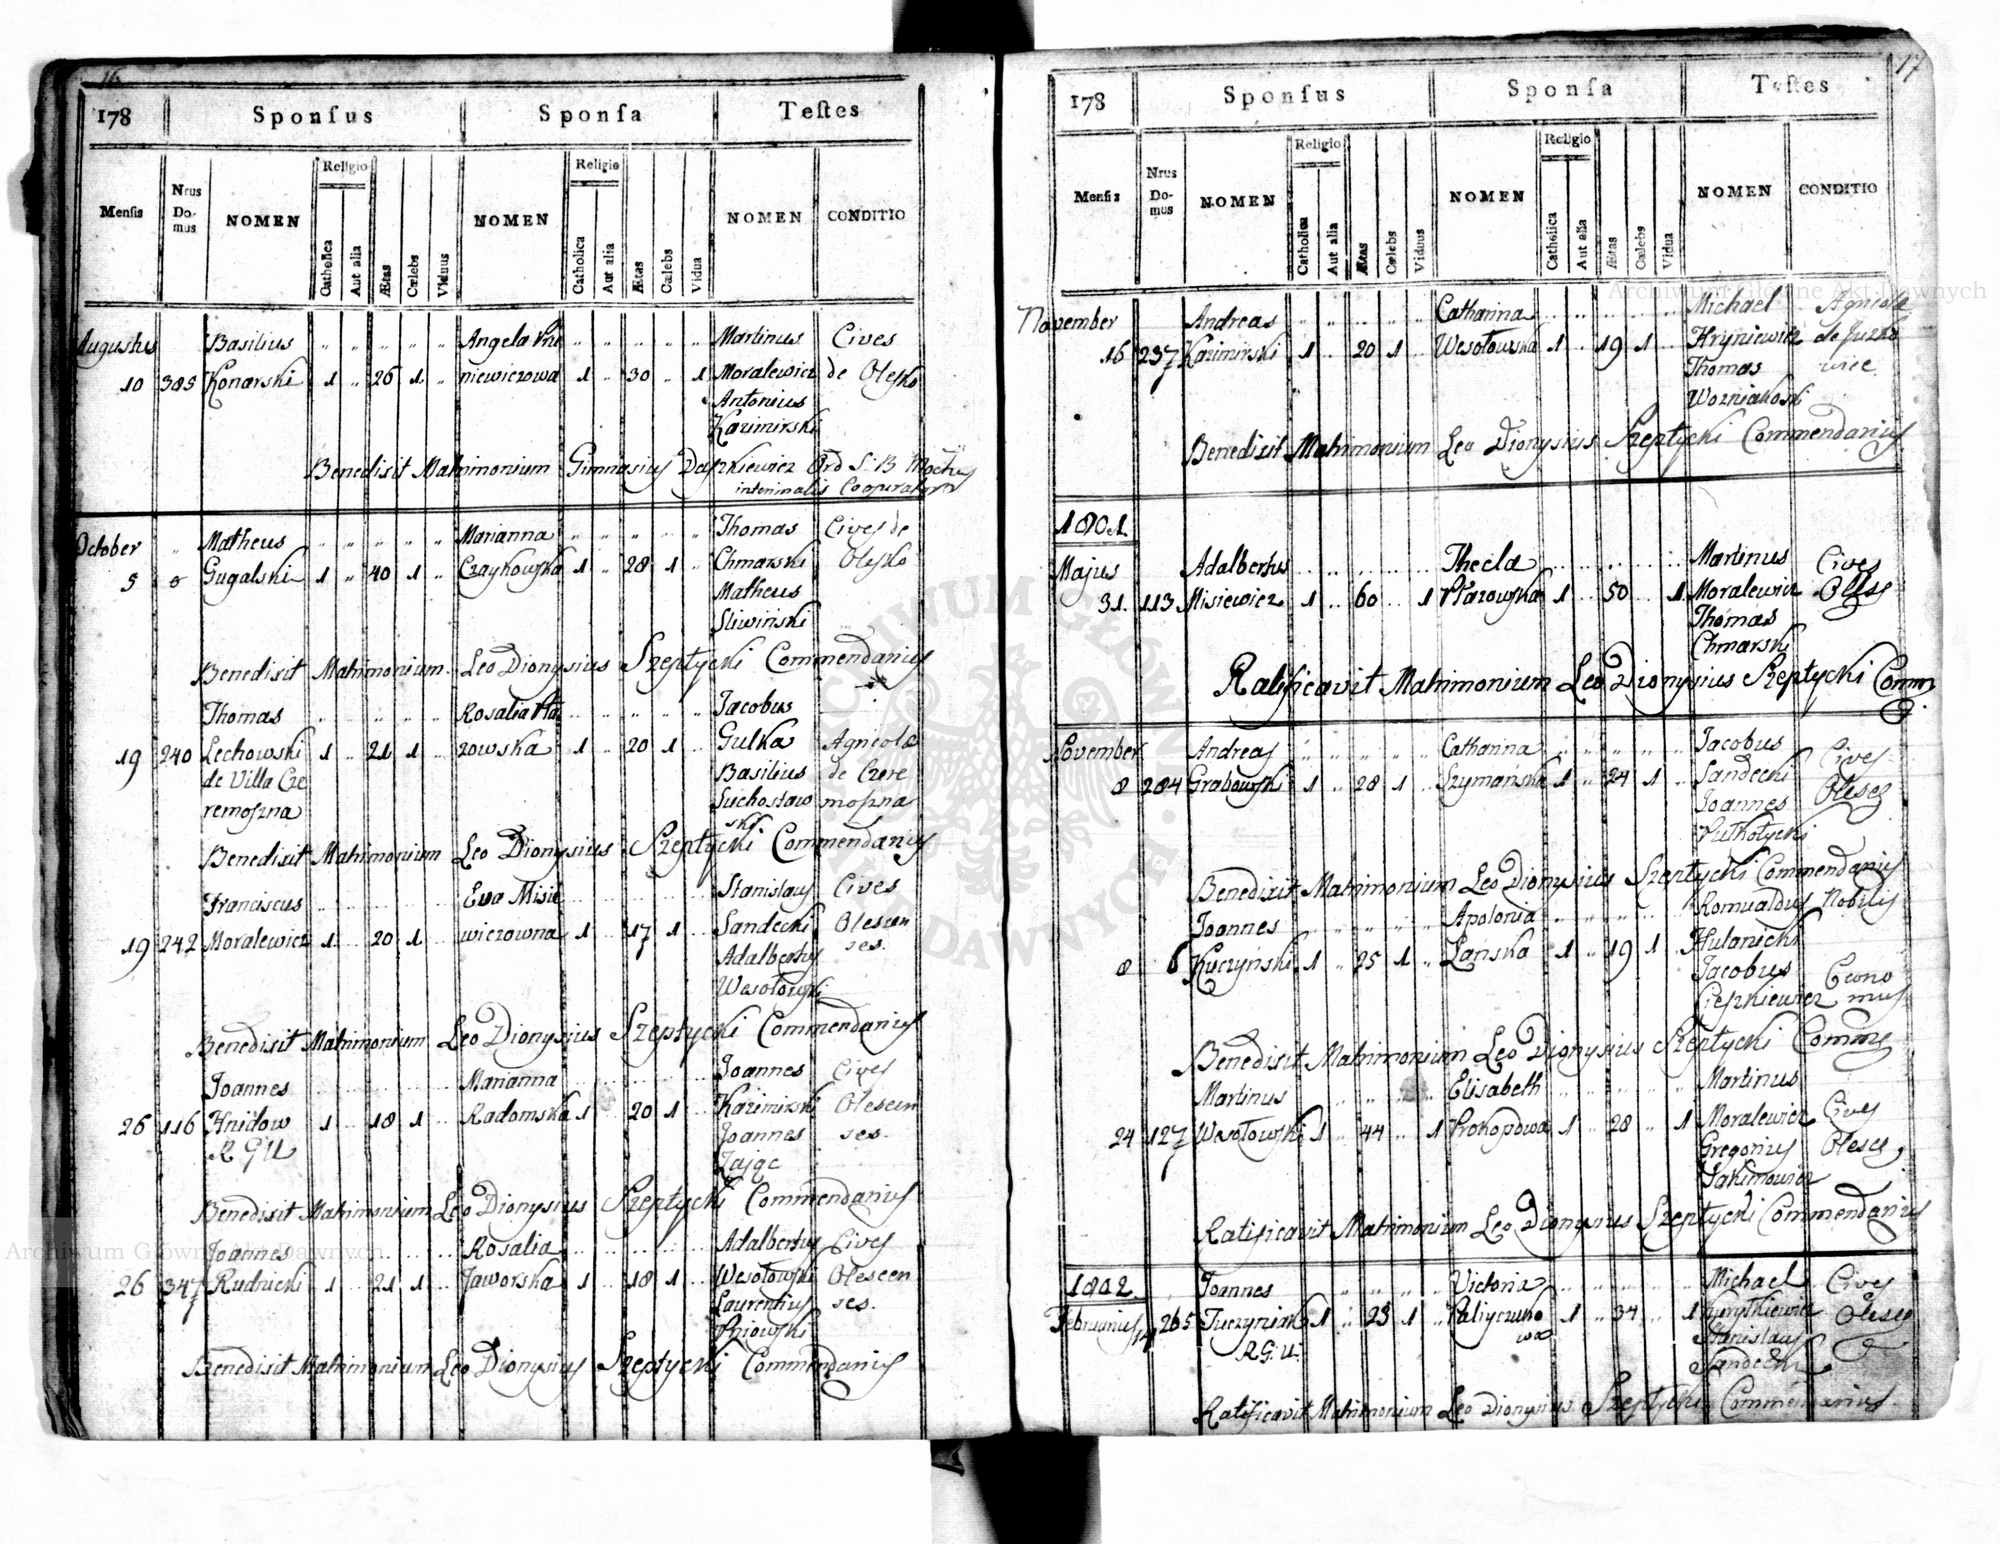 16
178 Sponsus Sponsa Testes
Mensis Nrus Domus NOMEN Religio Catholica Aut alia Ætas Cælebs Viduus NOMEN Religio Catholica Aut alia Ætas Cælebs Vidua NOMEN CONDITIO
Augustus Basilius Angela Martinus Cives
10 305 Konarski 1 26 1 niewiczowa 1 30 1 Moralewicz de Olesko
Antonius
Kazimirski
Benedixit Matrimonium Ord S. B
interimalis Cooperator
October Matheus Marianna Thomas Cives de
5 8 Gugalski 1 40 1 Czaykowska 1 28 1 Chmarski Olesko
Matheus
Sliwiński
Benedixit Matrimonium Leo Dionysius Szeptycki Commendarius
Thomas Rosalia Jacobus
19 240 Lechowski 1 21 1 zowska 1 20 1 Gulka Agricolæ
de Villa Cze Basilius de Czere
remoszna Suchostaw moszna
ski.
Benedixit Matrimonium Leo Dionysius Szeptycki Commendarius
Franciscus Eva Misie Stanislaus Cives
19 242 Moralewicz 1 20 1 wiczowna 1 17 1 Sandecki Olescen
Adalbertus ses.
Wesołowski
Benedixit Matrimonium Leo Dionysius Szeptycki Commendarius
Joannes Marianna Joannes Cives
26 116 Hnidow 1 18 1 Radomska 1 20 1 Kazimirski Olescen
R G U Joannes ses.
Zając
Benedixit Matrimonium Leo Dionysius Szeptycki Commendarius
Joannes Rosalia Adalbertus Cives
26 347 Rudnicki 1 21 1 Jaworska 1 18 1 Wesołowski Olescen
Laurentius ses.
Pniowski
Benedixit Matrimonium Leo Dionysius Szeptycki Commendarius
17
178 Sponsus Sponsa Testes
Mensis Nrus Domus NOMEN Religio Catholica Aut alia Ætas Cælebs Viduus NOMEN Religio Catholica Aut alia Ætas Cælebs Vidua NOMEN CONDITIO
November Andreas Catharina Michael Agricolæ
16 237 Kazimirski 1 20 1 Wesołowska 1 19 1 Hryniewicz de Juzko
Thomas wice
Wozniakoski
Benedixit Matrimonium Leo Dionysius Szeptycki Commendarius
1801.
Majus Adalbertus Thecla Martinus Cives
31. 113 Misiewicz 1 60 1 1 50 1 Moralewicz Olesc
Thomas
Chmarski
Ratificavit Matrimonium Leo Dionysius Szeptycki Comm
November Andreas Catharina Jacobus Cives
8 284 Grabowski 1 28 1 Szymańska 1 24 1 Sandecki Olesce
Joannes
Benedixit Matrimonium Leo Dionysius Szeptycki Commendarius
Joannes Apolonia Romualdus Nobilis
8 6 Kuczyński 1 25 1 Łańska 1 19 1 Hulanicki
Jacobus Œcono
mus
Benedixit Matrimonium Leo Dionysius Szeptycki Comme
Martinus Elisabeth Martinus
24 127 Wesołowski 1 44 1 Prokopowa 1 28 1 Moralewicz Cives
Gregorius Olesce
Jakimowicz
Ratificavit Matrimonium Leo Dionysius Szeptycki Commendarius
1802. Joannes Victoria Michael Cives
Februarius 14 265 Tuczyniak 1 23 1 1 34 1 Olesce
R G. U. Stanislaus
Sandecki
Ratificavit Matrimonium Leo Dionysius Szeptycki Commendarius
Archiwum Główne Akt Dawnych
Archiwum Główne Akt Dawnych
ARCHIWUM GŁÓWNE AKT DAWNYCH